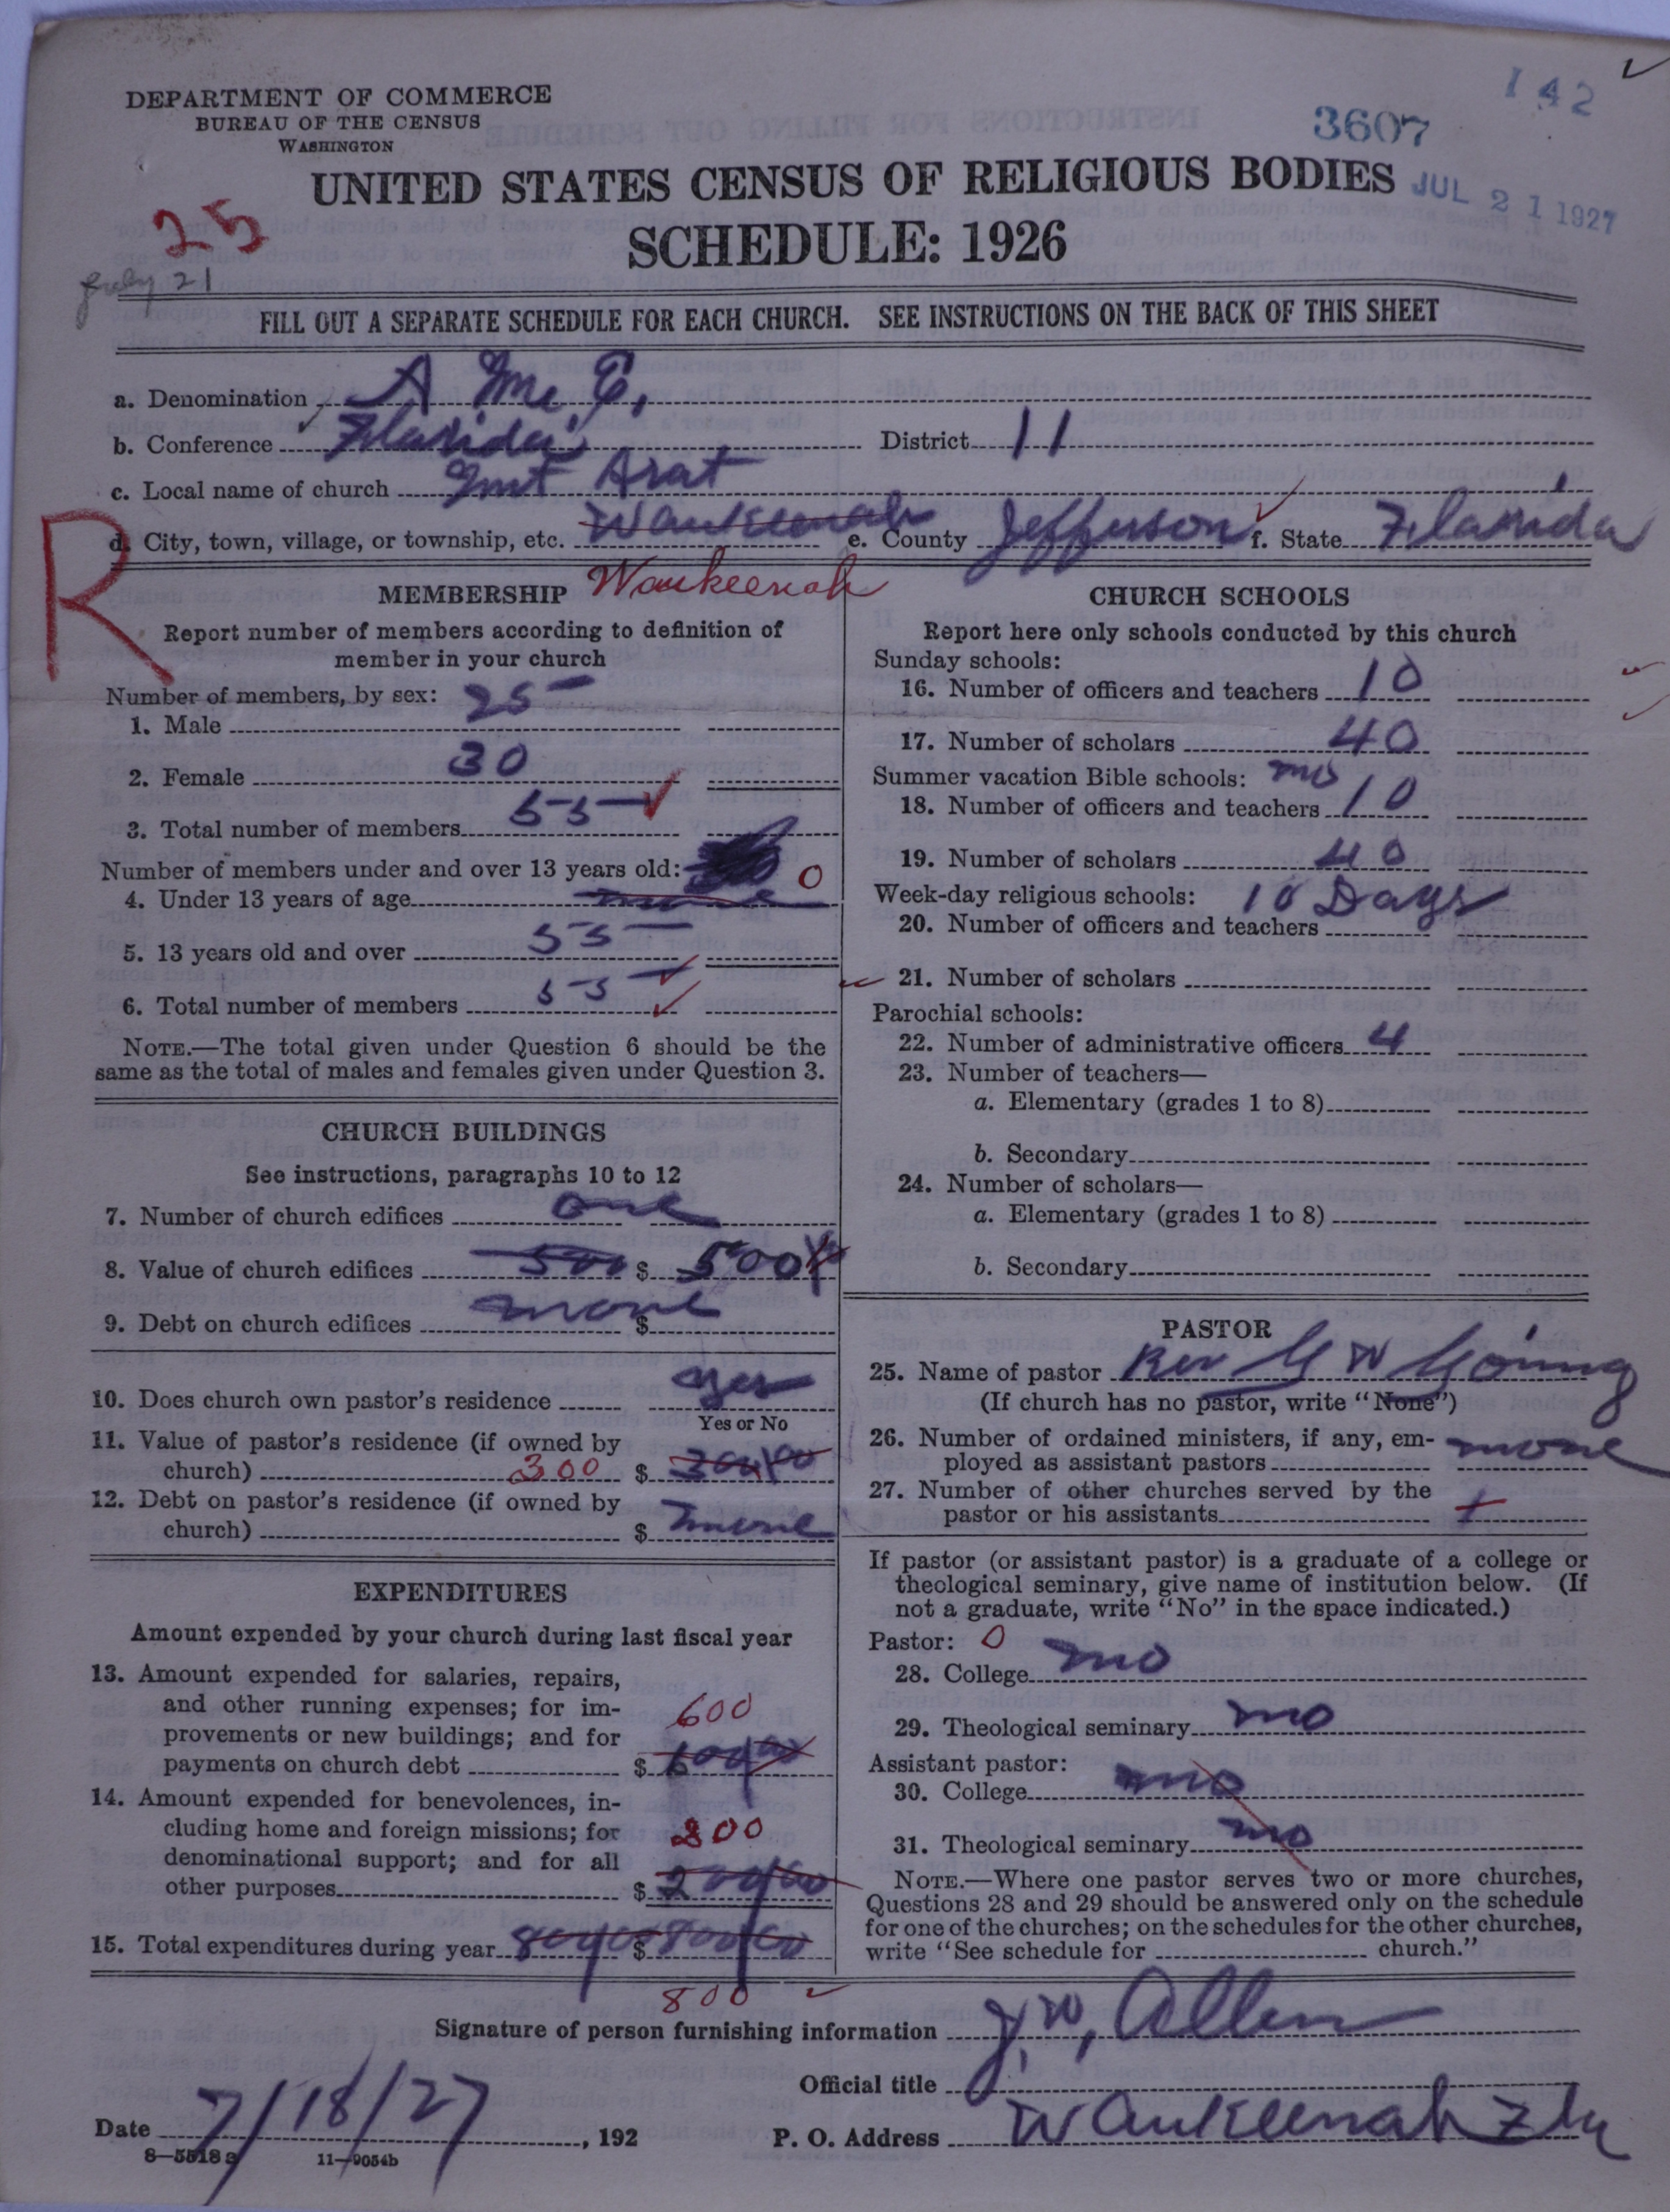 142
3607
DEPARTMENT OF COMMERCE
BUREAU OF THE CENSUS
WASHINGTON
UNITED STATES CENSUS OF RELIGIOUS BODIES
JUL 21 1927
SCHEDULE: 1926
25
July 21
FILL OUT A SEPARATE SCHEDULE FOR EACH CHURCH. SEE INSTRUCTIONS ON THE BACK OF THIS SHEET
a. Denomination A M. E.
b. Conference Florida District 11
c. Local name of church Mt Arat
d. City, town, village, or township, etc. Waukeenah e. County Jefferson f. State Florida
R
MEMBERSHIP Waukeenah
Report number of members according to definition of
member in your church
Number of members, by sex:
1. Male 25
2. Female 30
3. Total number of members 55
Number of members under and over 13 years old:
4. Under 13 years of age none 0
5. 13 years old and over 55
6. Total number of members 55
NOTE.—The total given under Question 6 should be the
same as the total of males and females given under Question 3.
CHURCH BUILDINGS
See instructions, paragraphs 10 to 12
7. Number of church edifices one
8. Value of church edifices 500 $ 500
9. Debt on church edifices none $
10. Does church own pastor's residence yes
Yes or No
11. Value of pastor's residence (if owned by
church) 300 $ 300/00
12. Debt on pastor's residence (if owned by
church) $ none
EXPENDITURES
Amount expended by your church during last fiscal year
13. Amount expended for salaries, repairs,
and other running expenses; for im-
provements or new buildings; and for 600
payments on church debt $ 600/00
14. Amount expended for benevolences, in-
cluding home and foreign missions; for 200
denominational support; and for all
other purposes $ 200/00
15. Total expenditures during year 800/00 $ 800/00
800
CHURCH SCHOOLS
Report here only schools conducted by this church
Sunday schools:
16. Number of officers and teachers 10
17. Number of scholars 40
Summer vacation Bible schools:
18. Number of officers and teachers 10
19. Number of scholars 40
Week-day religious schools: 10 Days
20. Number of officers and teachers
21. Number of scholars
Parochial schools:
22. Number of administrative officers 4
23. Number of teachers—
a. Elementary (grades 1 to 8)
b. Secondary
24. Number of scholars—
a. Elementary (grades 1 to 8)
b. Secondary
PASTOR
25. Name of pastor Rev G W
(If church has no pastor, write "None")
26. Number of ordained ministers, if any, em-
ployed as assistant pastors none
27. Number of other churches served by the
pastor or his assistants 1
If pastor (or assistant pastor) is a graduate of a college or
theological seminary, give name of institution below. (If
not a graduate, write "No" in the space indicated.)
Pastor: 0
28. College no
29. Theological seminary no
Assistant pastor:
30. College no
31. Theological seminary no
NOTE.—Where one pastor serves two or more churches,
Questions 28 and 29 should be answered only on the schedule
for one of the churches; on the schedules for the other churches,
write "See schedule for church."
Signature of person furnishing information J. W. Allen
Official title
Date 7/18/27, 192 P. O. Address Waukeenah Fla
8—5518 a 11—9054b